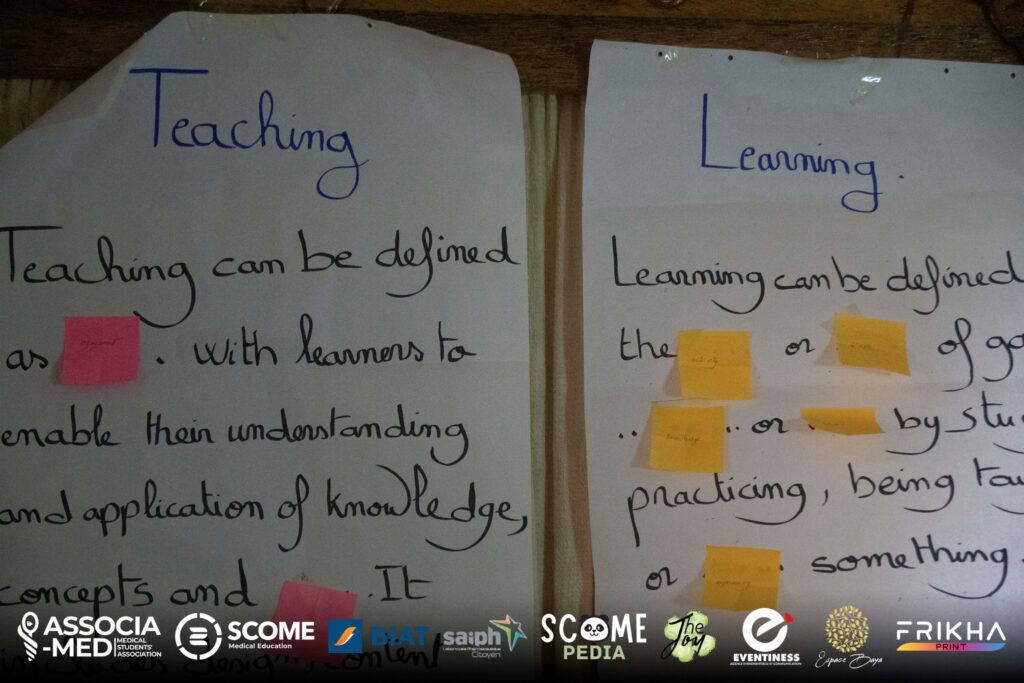 Teaching
Teaching can be defined
as . with learners to
enable their understanding
and application of knowledge,
concepts and ... It
Learning.
Learning can be defined
the or of go
.. .. or by stu
practicing, being tau
or something.
ASSOCIA
-MED
MEDICAL
STUDENTS'
ASSOCIATION
SCOME
Medical Education
BIAT
saiph
Laboratoire Pharmaceutique
Citoyen
SCOME
PEDIA
The
Joy
EVENTINESS
AGENCE ÉVÉNEMENTIELLE ET COMMUNICATION
Espace Baya
FRIKHA
PRINT